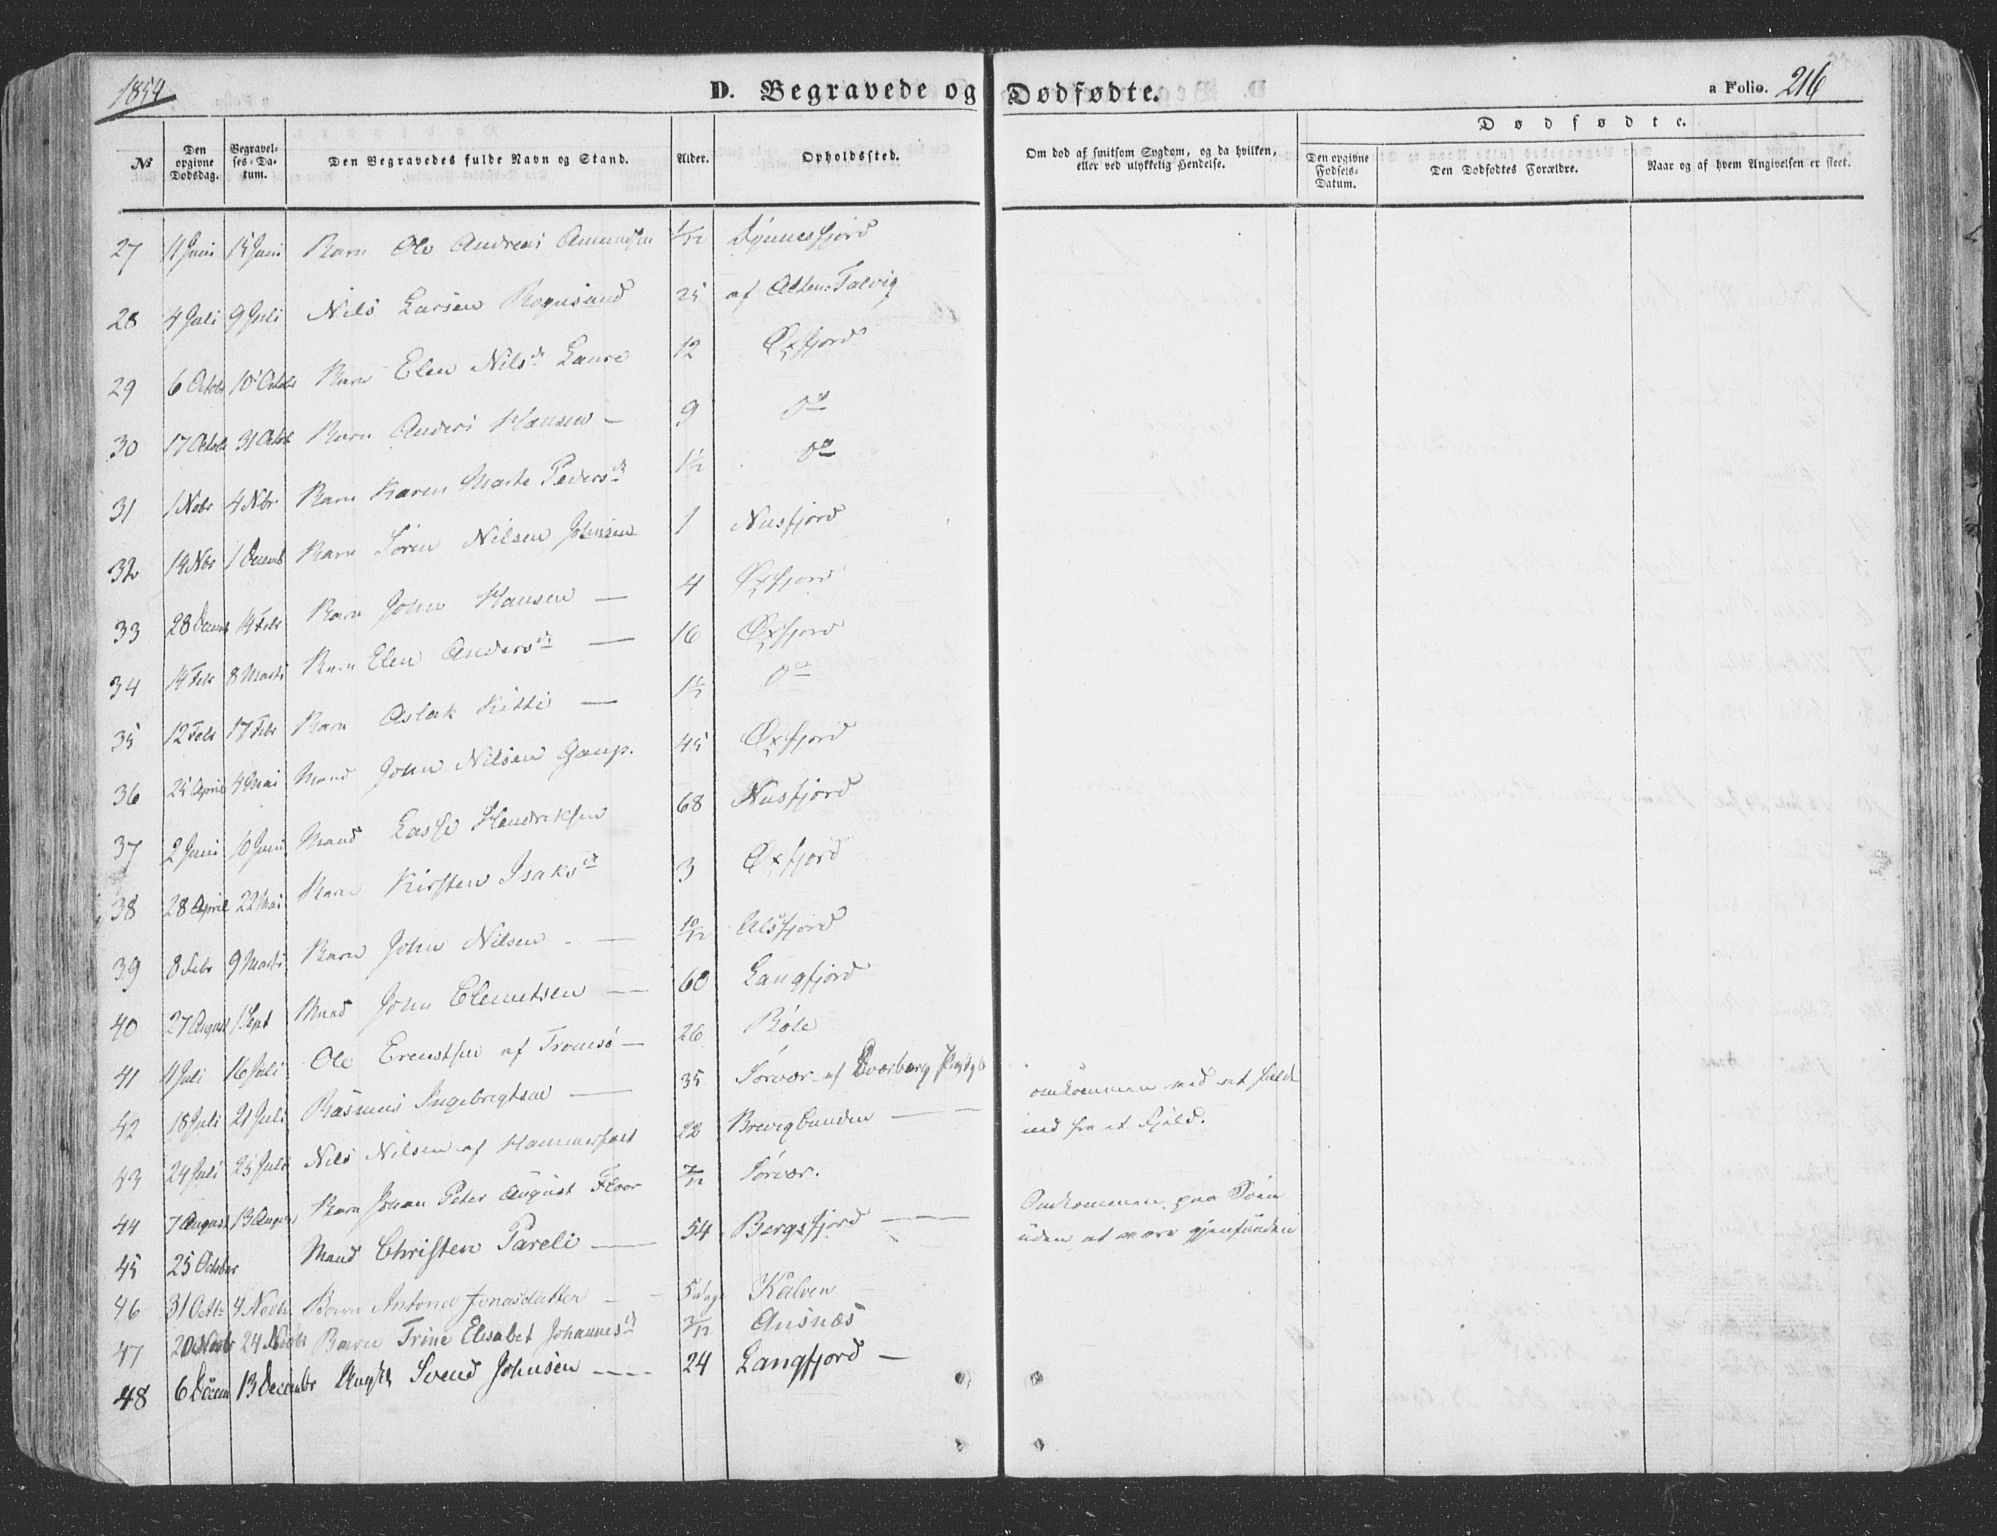 1854
D. Begravede og Dødfødte.
a Folio. 216
Dødfødte.
№
Den opgivne Dødsdag.
Begravelses-Datum.
Den Begravedes fulde Navn og Stand.
Alder.
Opholdssted.
Om død af smitsom Sygdom, og da hvilken, eller ved ulykkelig Hendelse.
Den opgivne Fødsels-Datum.
Den Dødfødtes Forældre.
Naar og af hvem Angivelsen er skeet.
27 11 Juni 15 Juni Barn Ole Andreas Amundsen 1/12
28 4 Juli 9 Juli Nils Larsen Rognsund 25 af Alten-Talvig
29 6 Octobr 10 Octobr Barn Elen Nilsd. 12 Øxfjord
30 17 Octobr 31 Octob Barn Anders Hansen — 9 do
31 1 Nobr 4 Nbr Barn Karen Marte Pedersd. 1½ do
32 14 Nbr 1 Decemb Barn Sören Nilsen Johnsen 1 Nusfjord
33 28 Decemb 14 Febr Barn John Hansen — 4 Øxfjord
34 14 Febr 8 Marts Barn Elen Andersd. — 16 Øxfjord
35 12 Febr 17 Febr Barn Aslak Kitti — do
36 25 April 4 Mai Mand John Nilsen Gaup. 45 Øxfjord
37 2 Juni 10 Juni Mand Lasse Hendriksen 68 Nusfjord
38 28 April 22 Mai Barn Kirsten Isaksd. 3 Øxfjord
39 8 Febr 9 Marts Barn John Nilsen — 10/12 Ulsfjord
40 27 August 1 Sept Mand John Clemetsen — 60 Langfjord
41 11 Juli 16 Juli Ole Erentsen af Tromsö — 26 Böle
42 18 Juli 21 Juli Rasmus Ingebrigtsen — 35 Sörvær af omkommen ved at falde
43 24 Juli 25 Juli Nils Nilsen af Hammerfest 22 Brevigbunden — ned fra et Fjeld.
44 7 August 13 August Barn Johan Peter August Floor 7/12 Sörvær.
45 25 October Mand Christen Pareli — 54 Bergsfjord — Omkommen paa Söen uden at være gjenfunden
46 31 Octbr 4 Novbr Barn Antona Jonasdatter 5 dage Kalven
47 20 Novbr 24 Novbr Barn Trine Elisabet Johannesd. Ausnæs
48 6 Decem 13 Decembr Ungk. Svend Johnsen — 24 Langfjord —